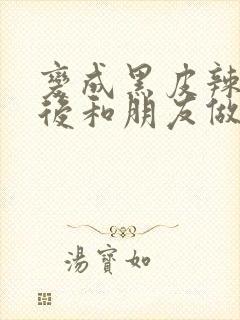 變成黑皮辣
後和朋友做
湯寶如